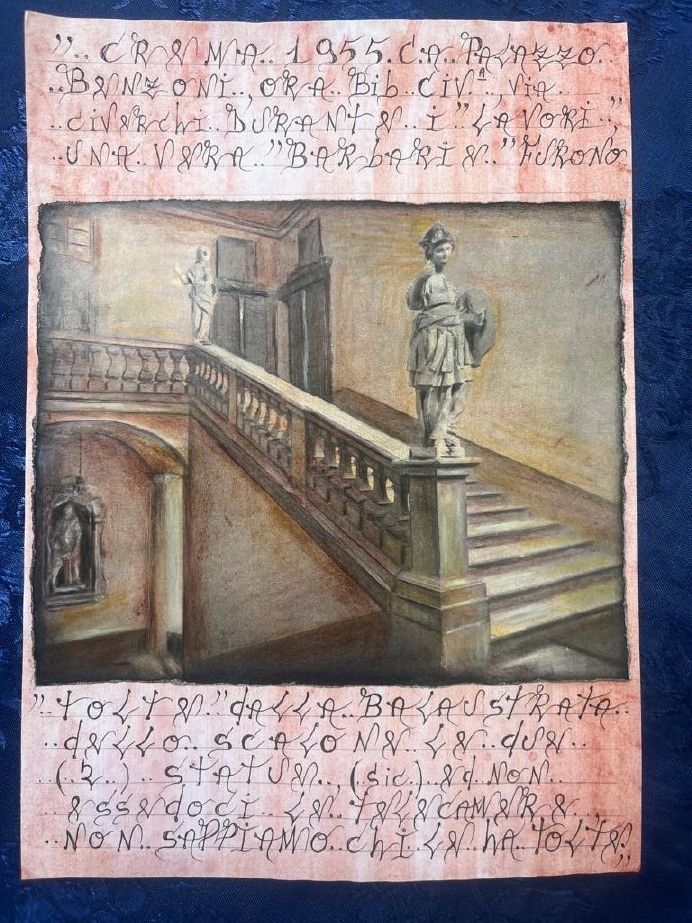 ".. CREMA.. 1955. CA. PALAZZO..
..BENZONI.., ORA.. Bib. CiV.ª, Via...
..CiVERChi.. DURANTE.. i "LAVORi.."
..UNA.. VERA.. "BARBARiE.." FURONO
"..TOLTE.." dALLA.. BALAUSTRATA..
..dELLO.. SCALONE.. LE.. dUE..
..(2..).. STATUE.., (Sic.).. Ed.. NON..
..ESSENdOCi.. LE.. TELECAMERE,..
..NON.. SAPPIAMO.. ChI.. LE.. hA.. TOLTE.."